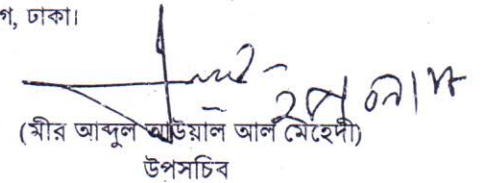 গ, ঢাকা।
(মীর আব্দুল আউয়াল আল মেহেদী)
উপসচিব